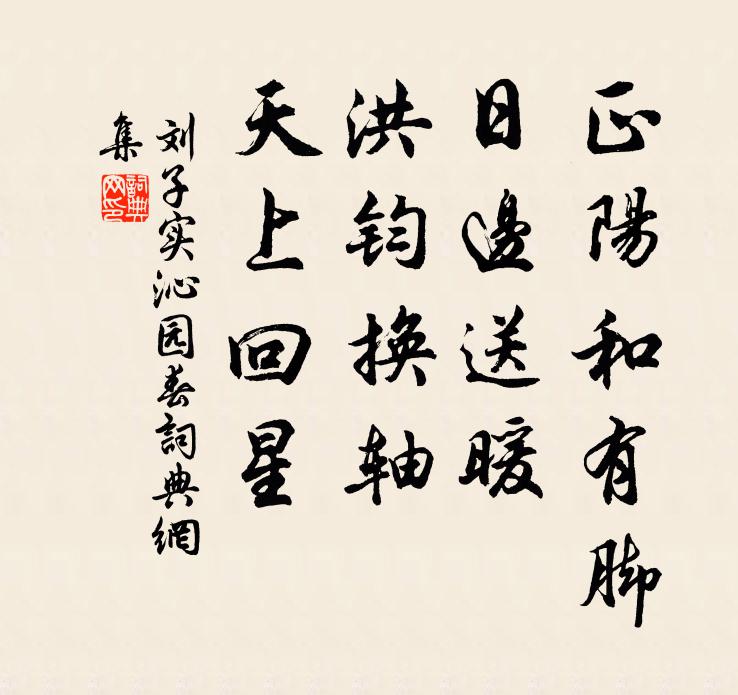 正陽和有脚
日邊送暖
洪鈞換軸
天上回星
刘子实沁园春詞典網
集
詞典
网印